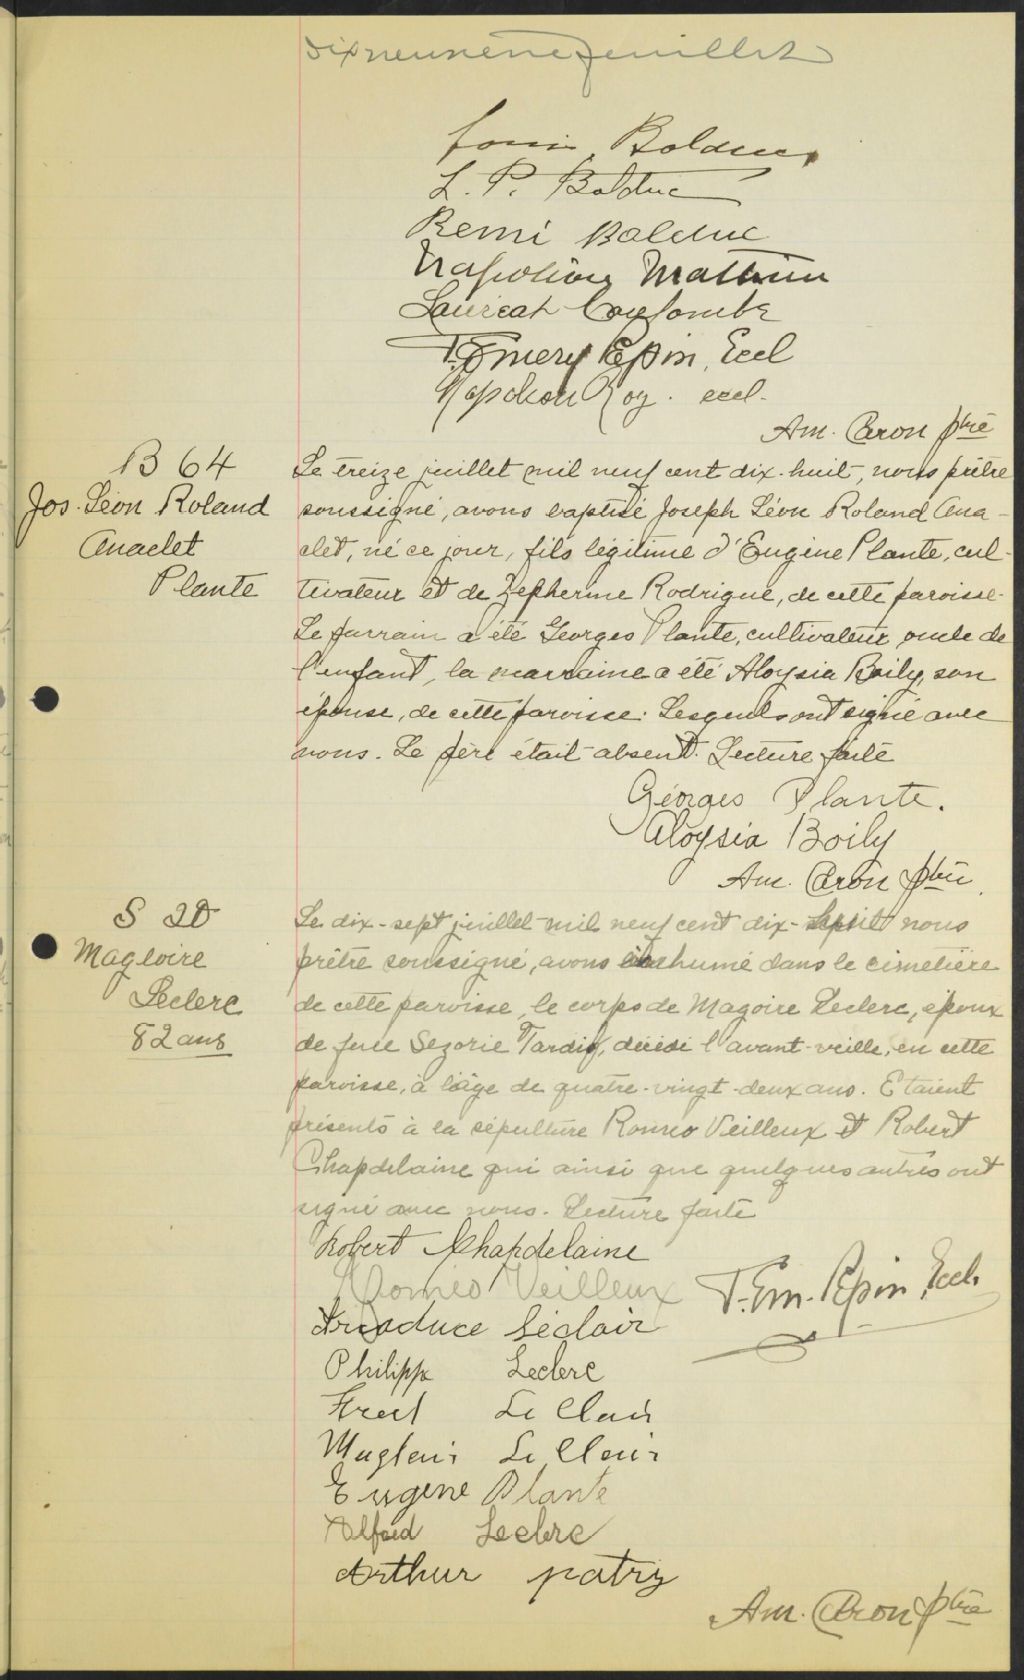 Dixneuvième feuillet
Louis Bolduc
L. P. Bolduc
Remi Bolduc
Napoléon Mathieu
Lauréat Coulombe
T. Emery Pépin, Eccl
Napoléon Roy. eccl.
Am. Caron ptre
B 64
Jos. Léon Roland
Anaclet
Plante
Le treize juillet mil neuf cent dix-huit, nous prêtre
soussigné, avons baptisé Joseph Léon Roland Ana-
clet, né ce jour, fils légitime d'Eugène Plante, cul-
tivateur et de Zepherine Rodrigue, de cette paroisse.
Le parrain a été Georges Plante, cultivateur, oncle de
l'enfant, la marraine a été Aloysia Boily, son
épouse, de cette paroisse. Lesquels ont signé avec
nous. Le père était absent. Lecture faite
Géorges Plante.
Aloysia Boily
Am. Caron ptre
S 20
Magloire
Leclerc
82 ans
Le dix-sept juillet mil neuf cent dix-huit nous
prêtre soussigné, avons inhumé dans le cimetière
de cette paroisse, le corps de Magoire Leclerc, époux
de feue Sezorie Tardif, décédé l'avant-veille, en cette
paroisse, à l'âge de quatre-vingt-deux ans. Etaient
présents à la sépulture Romeo Veilleux et Robert
Chapdelaine qui ainsi que quelques autres ont
signé avec nous. Lecture faite
Robert Chapdelaine
Roméo Veilleux
T. Em. Pépin, Eccl.
Léclair
Philippe Leclerc
Fred Le Clair
Le Clair
Eugene Plante
Alfred Leclerc
Arthur patry
Am. Caron ptre